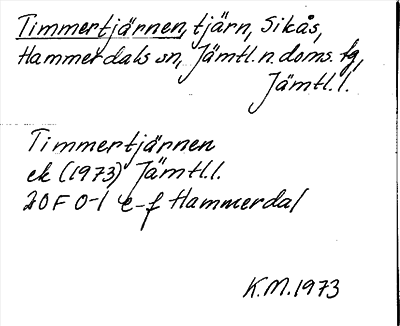 Timmertjärnen, tjärn, Sikås,
Hammerdals sn, Jämtl. n. doms. fg,
Jämtl. l.
Timmertjärnen
ek (1973) Jämtl. l.
20F 0-1 e-f Hammerdal
K.M. 1973